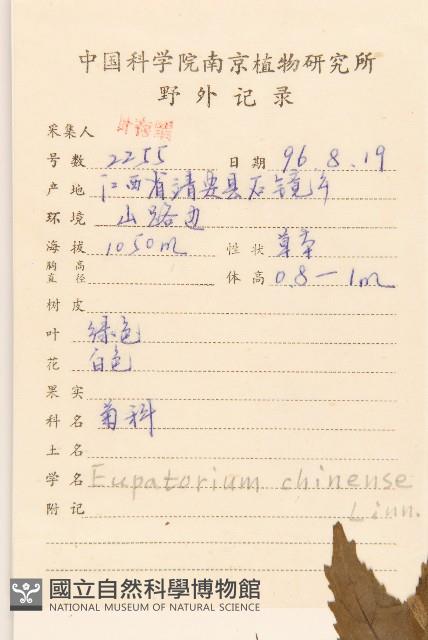 中国科学院南京植物研究所
野外记录
采集人
号数 2255 日期 96.8.19
产地 江西省靖安县石镜乡
环境 山路边
海拔 1050m 性状 草本
胸高直径 体高 0.8-1m
树皮
叶 绿色
花 白色
果实
科名 菊科
土名
学名 Eupatorium chinense
Linn.
附记
國立自然科學博物館
NATIONAL MUSEUM OF NATURAL SCIENCE